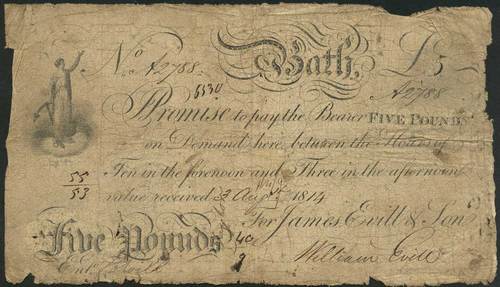 No A2788 Bath, £5
6530 A2788
I Promise to pay the Bearer FIVE POUNDS
on Demand here, between the Hours of
Ten in the forenoon and Three in the afternoon
55
53
value received 3 Augt 1814
For James Evill & Son
Five Pounds
William Evill
Entd